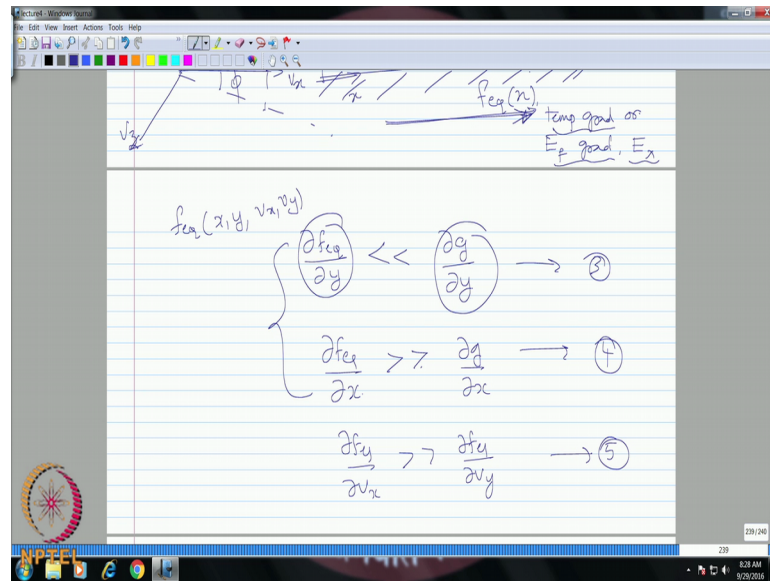 lecture4 - Windows Journal
File Edit View Insert Actions Tools Help
vx
x
feq(x)
temp grad or
EF grad, Ex
feq(x,y, vx,vy)
∂feq/∂y << ∂g/∂y → ③
∂feq/∂x >> ∂g/∂x → ④
∂feq/∂vx >> ∂feq/∂vy → ⑤
239/240
239
NPTEL
8:28 AM
9/29/2016